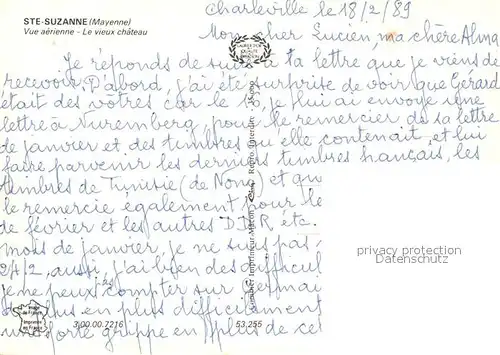 STE-SUZANNE (Mayenne)
Vue aérienne - Le vieux château
Charleville le 18/2/89
Mon cher Lucien, ma chère Alma
Je réponds de suite à ta lettre que je viens de
recevoir. D'abord, j'ai été surprise de voir que Gérard
était des votres car le je lui ai envoyé une
lettre à Nuremberg, pour le remercier de sa lettre
de janvier et des timbres qu'elle contenait, et lui
faire parvenir les derniers timbres français, les
timbres de Tunisie (de Nono) et que
le remercie également pour le
de février et les autres D.D.R. été.
mois de janvier, je ne suis pas
24/2, aussi, j'ai bien des difficul
je ne peux compter sur Germai
plus en plus difficilement
une forte grippe en plus de cel
privacy protection
Datenschutz
Image de France
Imprimée en France
3.00.00.7216
53.255